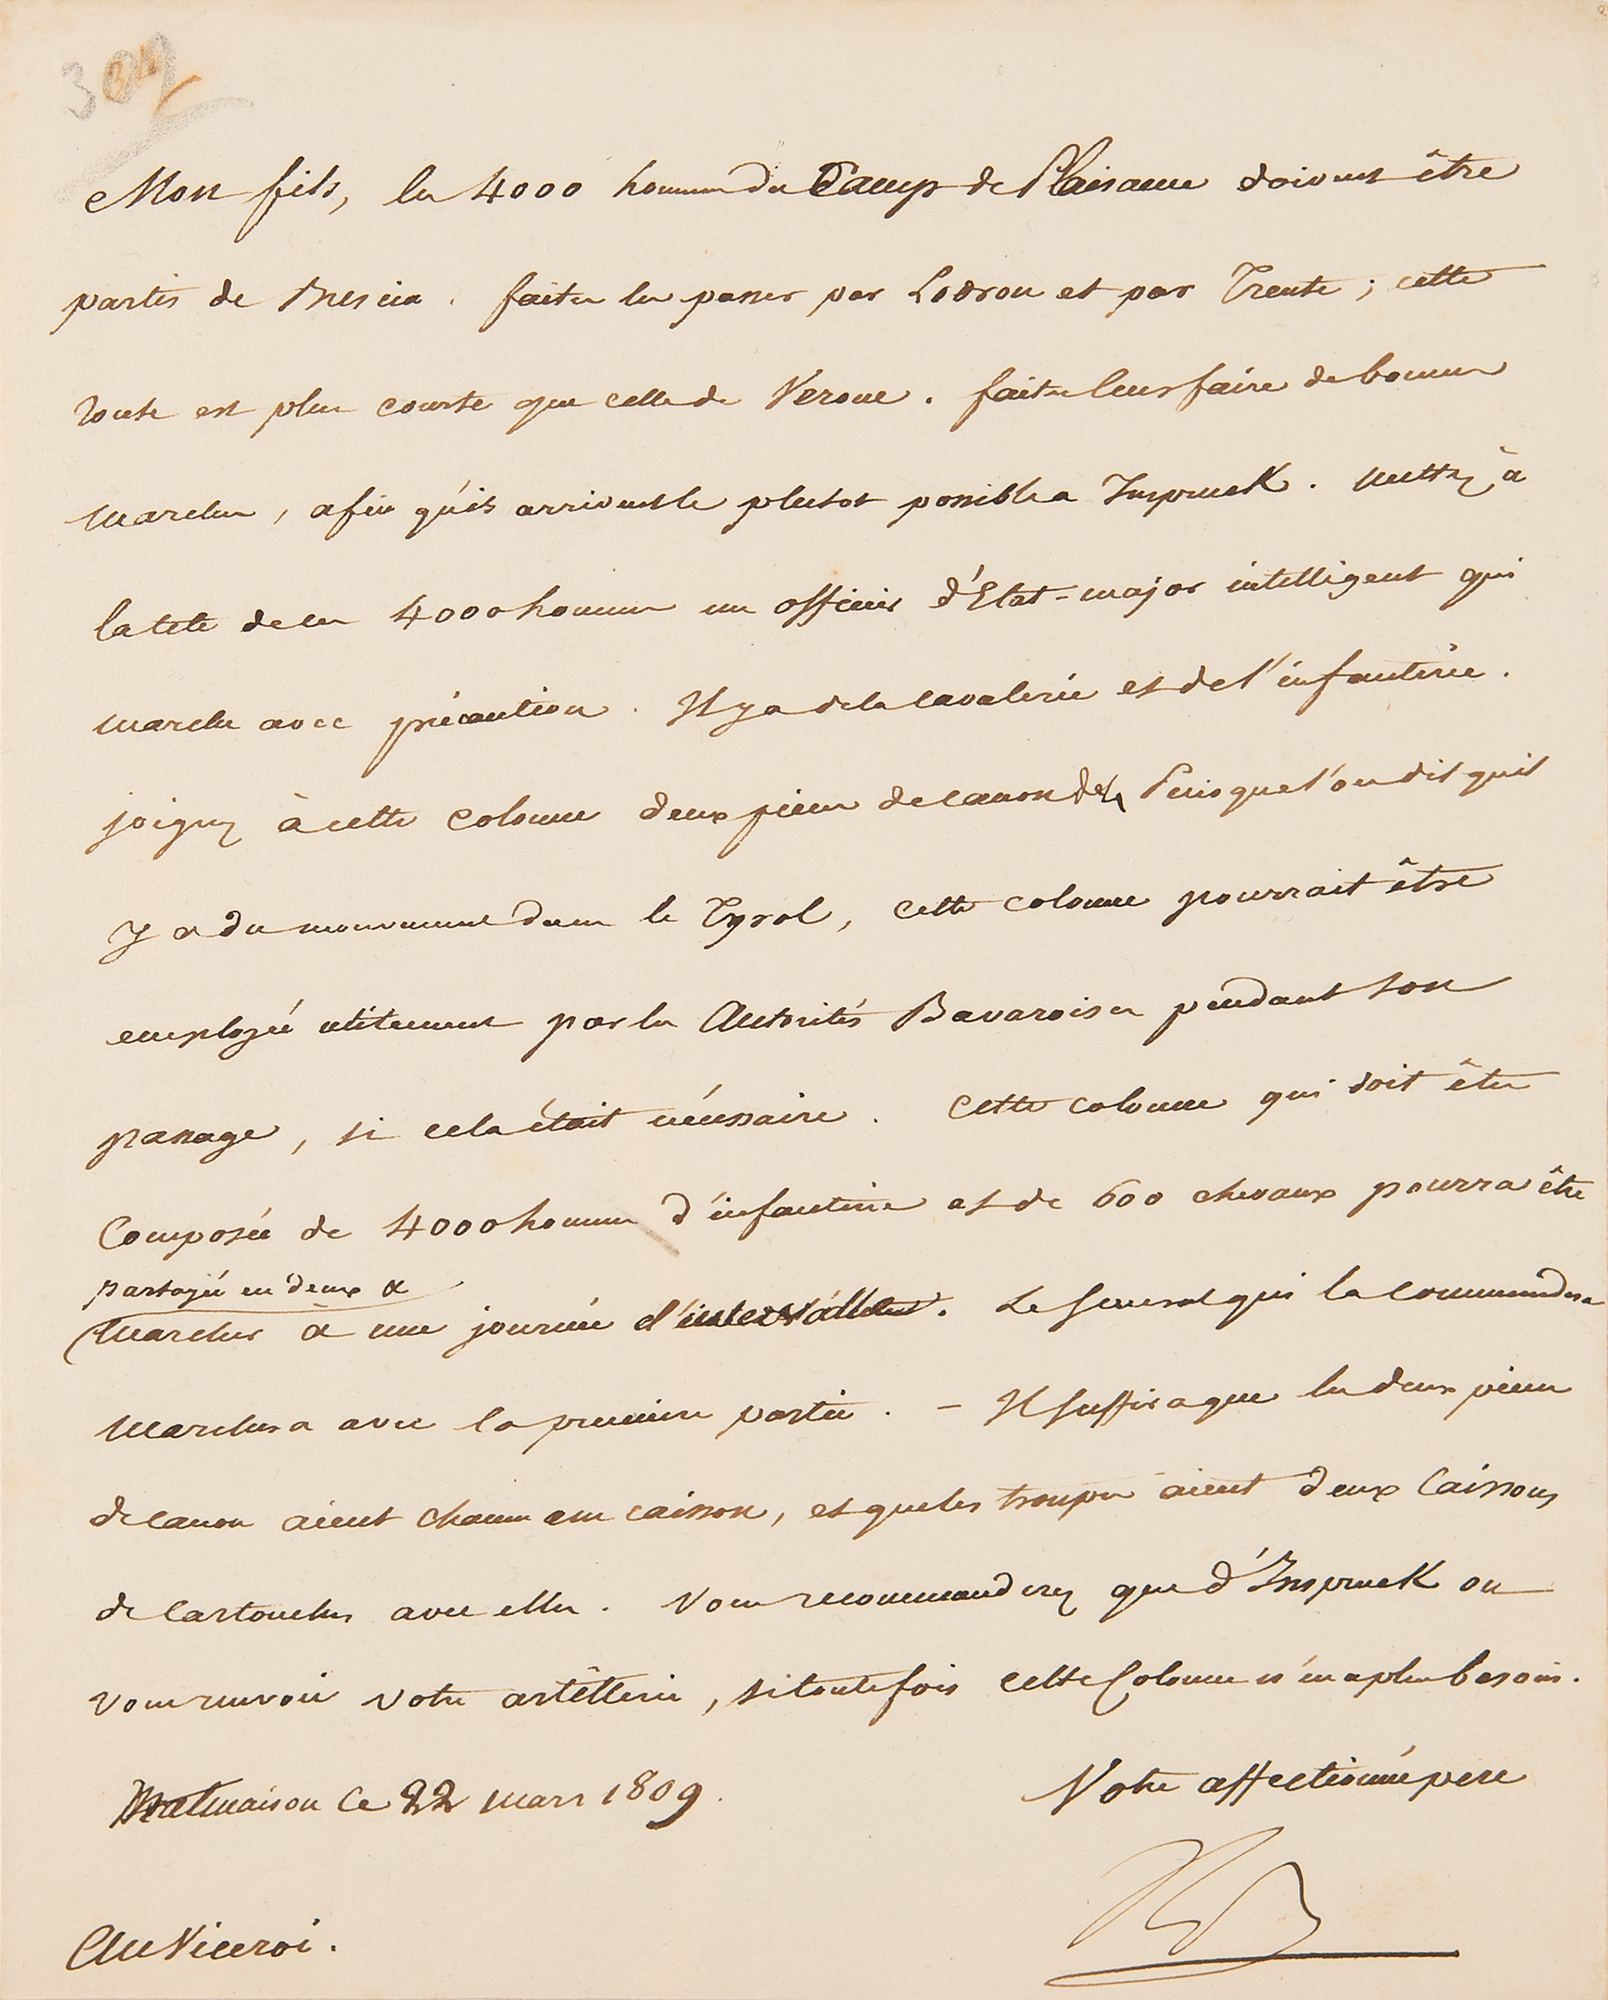 Mon fils, les 4000 hommes du Camp de Plaisance doivent être
partis de Brescia. faites les passer par Lodron et par Trente; cette
route est plus courte que celle de Verone. faites leur faire de bonnes
marches, afin qu'ils arrivent le plutot possible a Inspruck. Mettez à
la tete de ces 4000 hommes un officier d'Etat-major intelligent qui
marche avec précaution. Il y a de la cavalerie et de l'infanterie.
joignez à cette colonne deux pieces de canon Puisque l'on dit qu'il
y a du mouvement dans le Tyrol, cette colonne pourrait être
employée utilement par les Autorités Bavaroises pendant son
passage, si cela était nécessaire. Cette colonne qui doit être
Composée de 4000 hommes d'infanterie et de 600 chevaux pourra être
partagée en deux &
marcher à une journée d'intervalle. Le General qui la commandera
marchera avec la premiere partie. - Il suffira que les deux pieces
de canon aient chacune un caisson, et que les troupes aient deux Caissons
de Cartouches avec elles. Vous recommanderez que d'Inspruck on
vous renvoie votre artillerie, si toutefois cette Colonne n'en a plus besoin.
Votre affectionné pere
Malmaison Ce 22 mars 1809.
Au Viceroi.